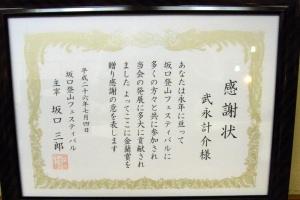 感謝状
武永計介様
あなたは永年に亘って
坂口登山フェスティバルに
多くの方々と共に参加され
当会の発展に多大に貢献され
ました よってここに金蘭賞を
贈り感謝の意を表します
平成二十六年七月四日
坂口登山フェスティバル
主宰 坂口三郎